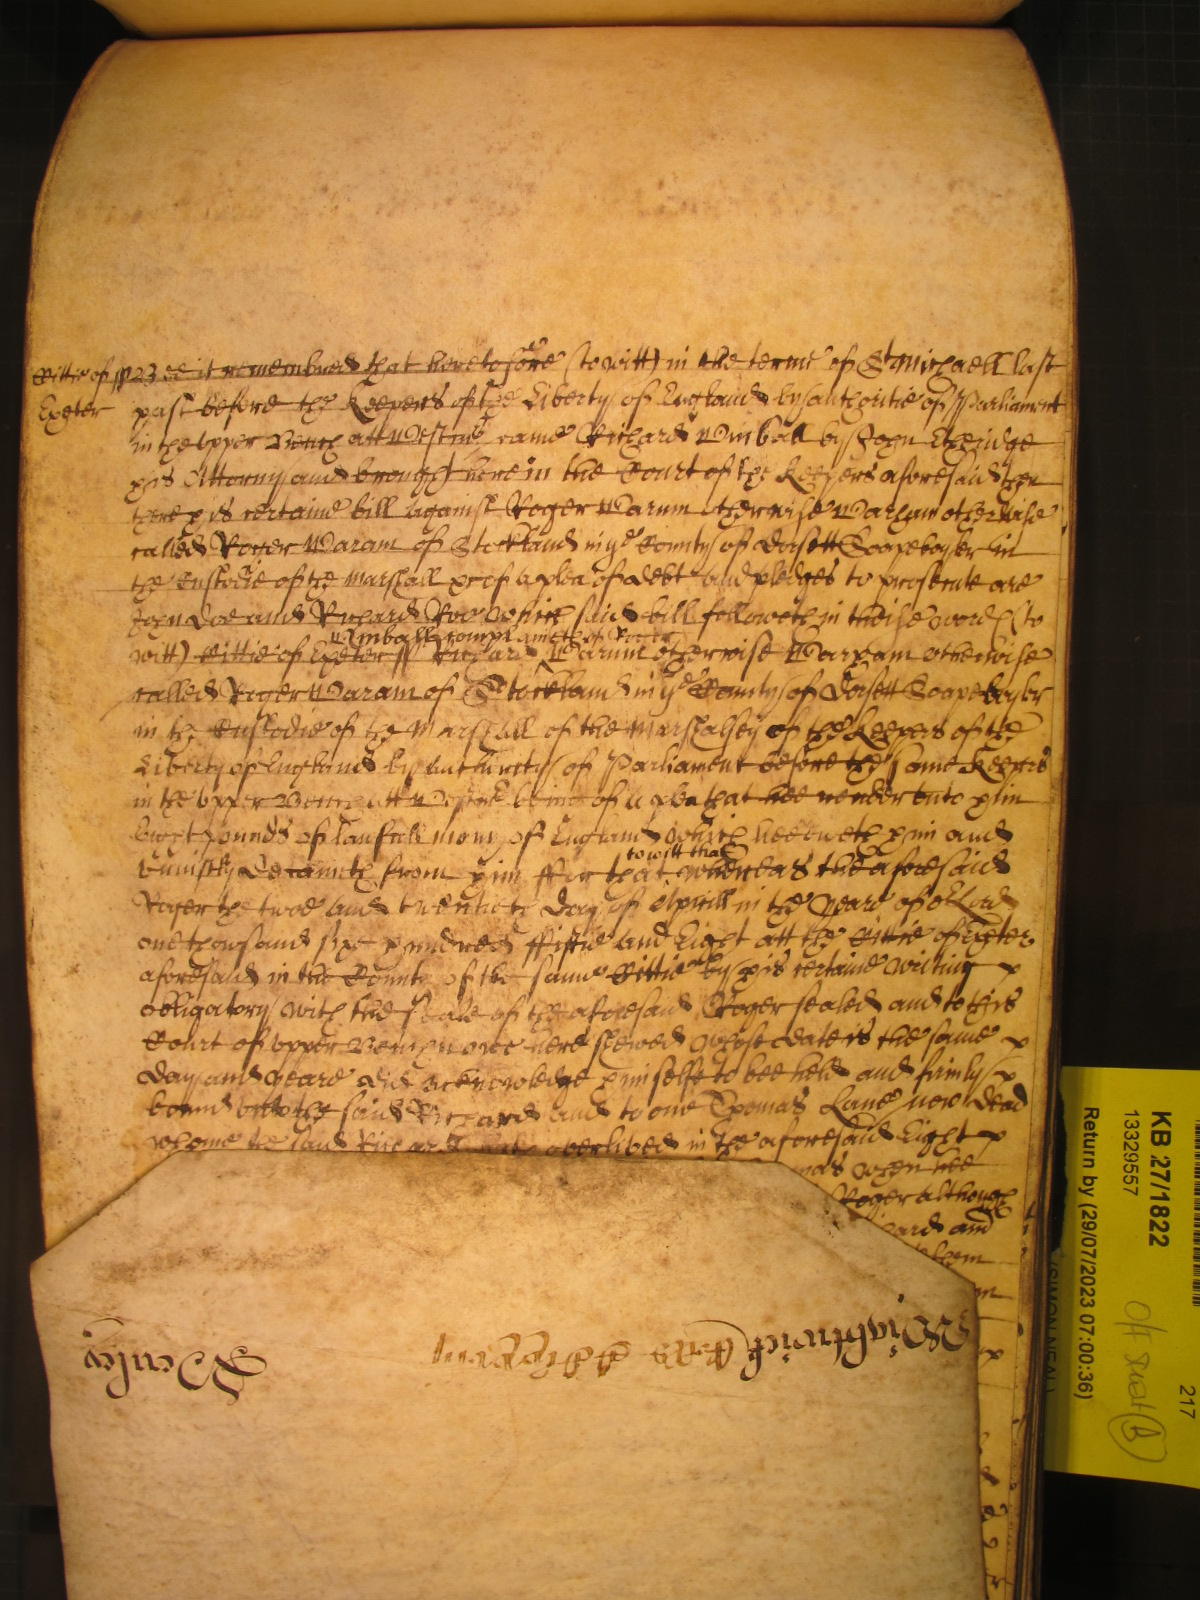 Cittie of ss Bee it remembred that heretofore (to witt) in the terme of St Michaell last
Exeter past before the Keepers of the Liberty of England by authoritie of Parliament
in the upper Bench att Westmr came Richard Wimball by John Etheridge
his Attorny and brought here in the Court of the Keepers aforesaid then
there his certaine bill against Roger Warum otherwise Warham otherwise
called Roger Waram of Stockland in ye County of Dorsett Soapeboyler in
the Custodie of the Marshall &c of a plea of debt and pledges to prosecute are
John Doe and Richard Roe which said bill followeth in theise words (to
witt) Cittie of Exeter ss Richard Wimball complaineth of Roger Warum otherwise Warham otherwise
called Roger Waram of Stockland in ye County of Dorsett Soapeboyler
in the Custodie of the Marshall of the Marshalsey of the Keepers of the
Liberty of England by authority of Parliament before the same Keepers
in the upper Bench att Westmr being of a plea that hee render unto him
eight pounds of lawfull mony of England which hee oweth him and
uniustly detaineth from him ffor that to witt that whereas the aforesaid
Roger the twoe and twentieth day of Aprill in the yeare of or Lord
one thowsand six hundred ffiftie and Eight att the Cittie of Exeter
aforesaid in the County of the same Cittie by his certaine writing
obligatory with the seale of the aforesaid Roger sealed and to this
Court of upper Bench now here shewed whose date is the same
day and yeare did acknowledge himselfe to bee held and firmly
bound unto the said Richard and to one Thomas Lane now dead
whome the said Richard hath overlived in the aforesaid Eight
when hee
Roger although
and
them
Wightwick
Henley
KB 27/1822
13329557
Return by (29/07/2023 07:00:36)
(SIMON NEAL)
217